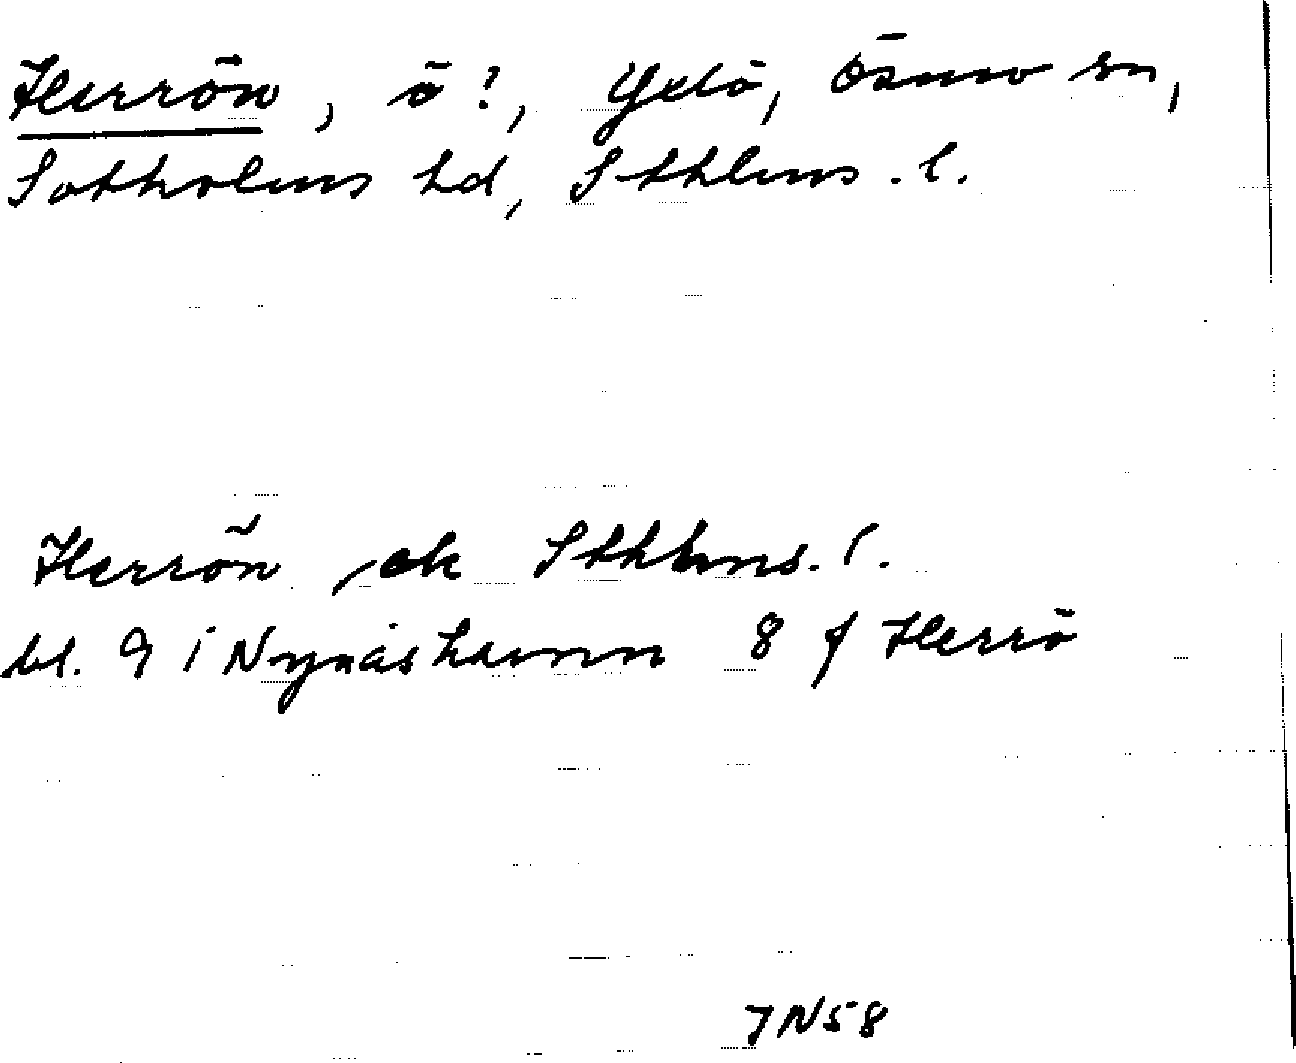 Herrön, ö!, Yxlö, Ösmo sn,
Sotholms hd, Sthlms. l.
Herrön, ek Sthlms. l.
bl. 9 i Nynäshamn 8 f Herrö
JN58